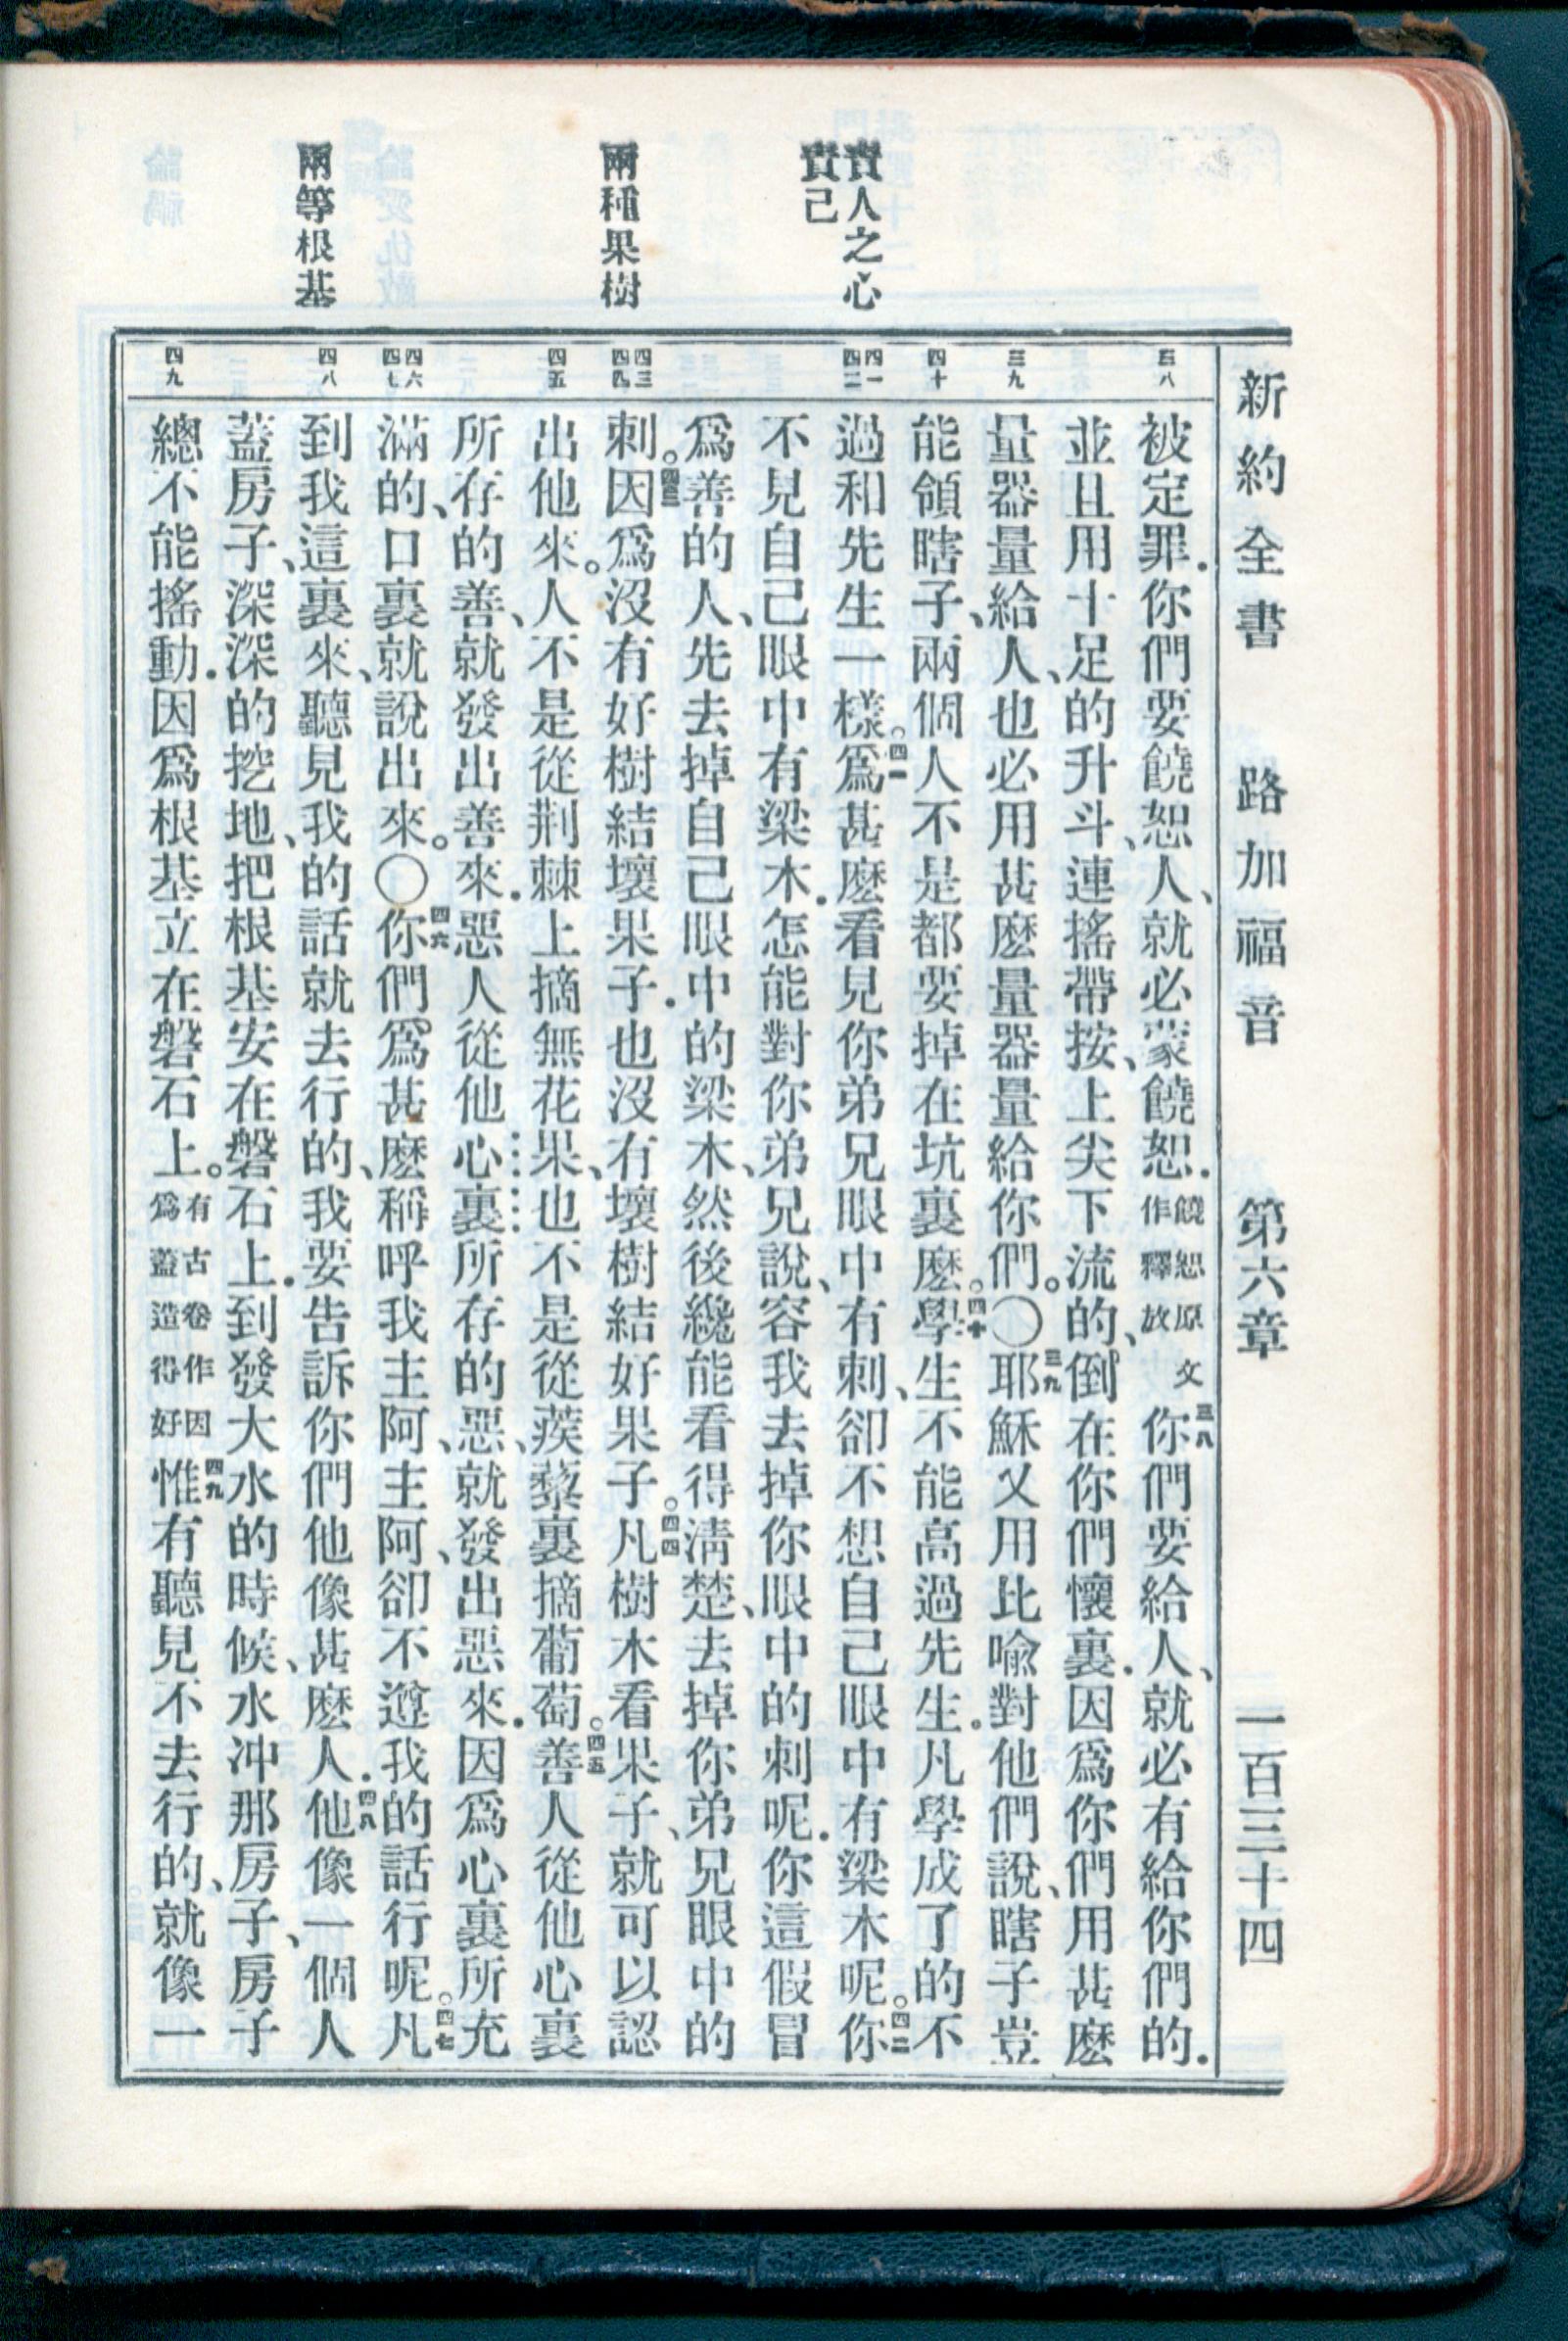 新約全書 路加福音 第六章 一百三十四
責人之心
責己
兩種果樹
兩等根基
三八
三九
四十
四一
四二
四三
四四
四五
四六
四七
四八
四九
被定罪．你們要饒恕人、就必蒙饒恕．饒恕原文作釋放三八你們要給人、就必有給你們的．
並且用十足的升斗、連搖帶按、上尖下流的、倒在你們懷裏．因爲你們用甚麽
量器量給人、也必用甚麽量器量給你們。〇三九耶穌又用比喻對他們說、瞎子豈
能領瞎子、兩個人不是都要掉在坑裏麽。四十學生不能高過先生。凡學成了的不
過和先生一樣。四一爲甚麽看見你弟兄眼中有刺、卻不想自己眼中有梁木呢。四二你
不見自己眼中有梁木．怎能對你弟兄說、容我去掉你眼中的刺呢．你這假冒
爲善的人、先去掉自己眼中的梁木、然後纔能看得淸楚、去掉你弟兄眼中的
刺。四三因爲沒有好樹結壞果子．也沒有壞樹結好果子。四四凡樹木看果子、就可以認
出他來。人不是從荆棘上摘無花果、也不是從蒺藜裏摘葡萄。四五善人從他心裏
所存的善、就發出善來．惡人從他心裏所存的惡、就發出惡來．因爲心裏所充
滿的、口裏就說出來。〇四六你們爲甚麽稱呼我主阿、主阿、卻不遵我的話行呢。四七凡
到我這裏來、聽見我的話就去行的、我要告訴你們他像甚麽人．四八他像一個人
蓋房子、深深的挖地、把根基安在磐石上．到發大水的時候、水冲那房子、房子
總不能搖動．因爲根基立在磐石上。有古卷作因爲蓋造得好四九惟有聽見不去行的、就像一